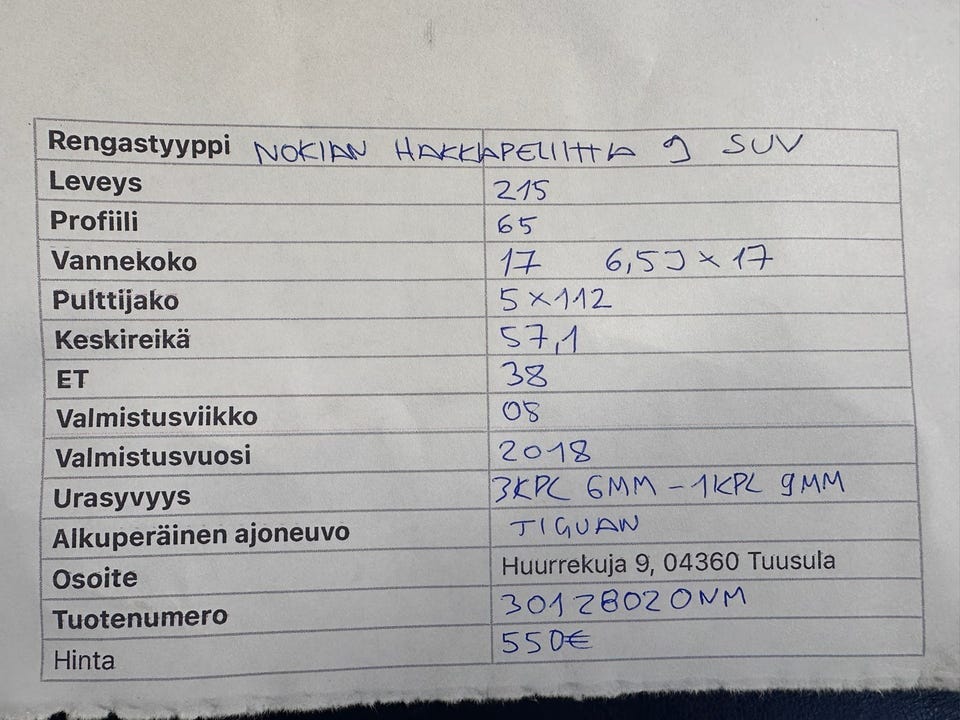 Rengastyyppi NOKIAN HAKKAPELIITTA 9 SUV
Leveys 215
Profiili 65
Vannekoko 17 6,5J x 17
Pulttijako 5x112
Keskireikä 57,1
ET 38
Valmistusviikko 08
Valmistusvuosi 2018
Urasyvyys 3KPL 6MM - 1KPL 9MM
Alkuperäinen ajoneuvo TIGUAN
Osoite Huurrekuja 9, 04360 Tuusula
Tuotenumero 30128020NM
Hinta 550€